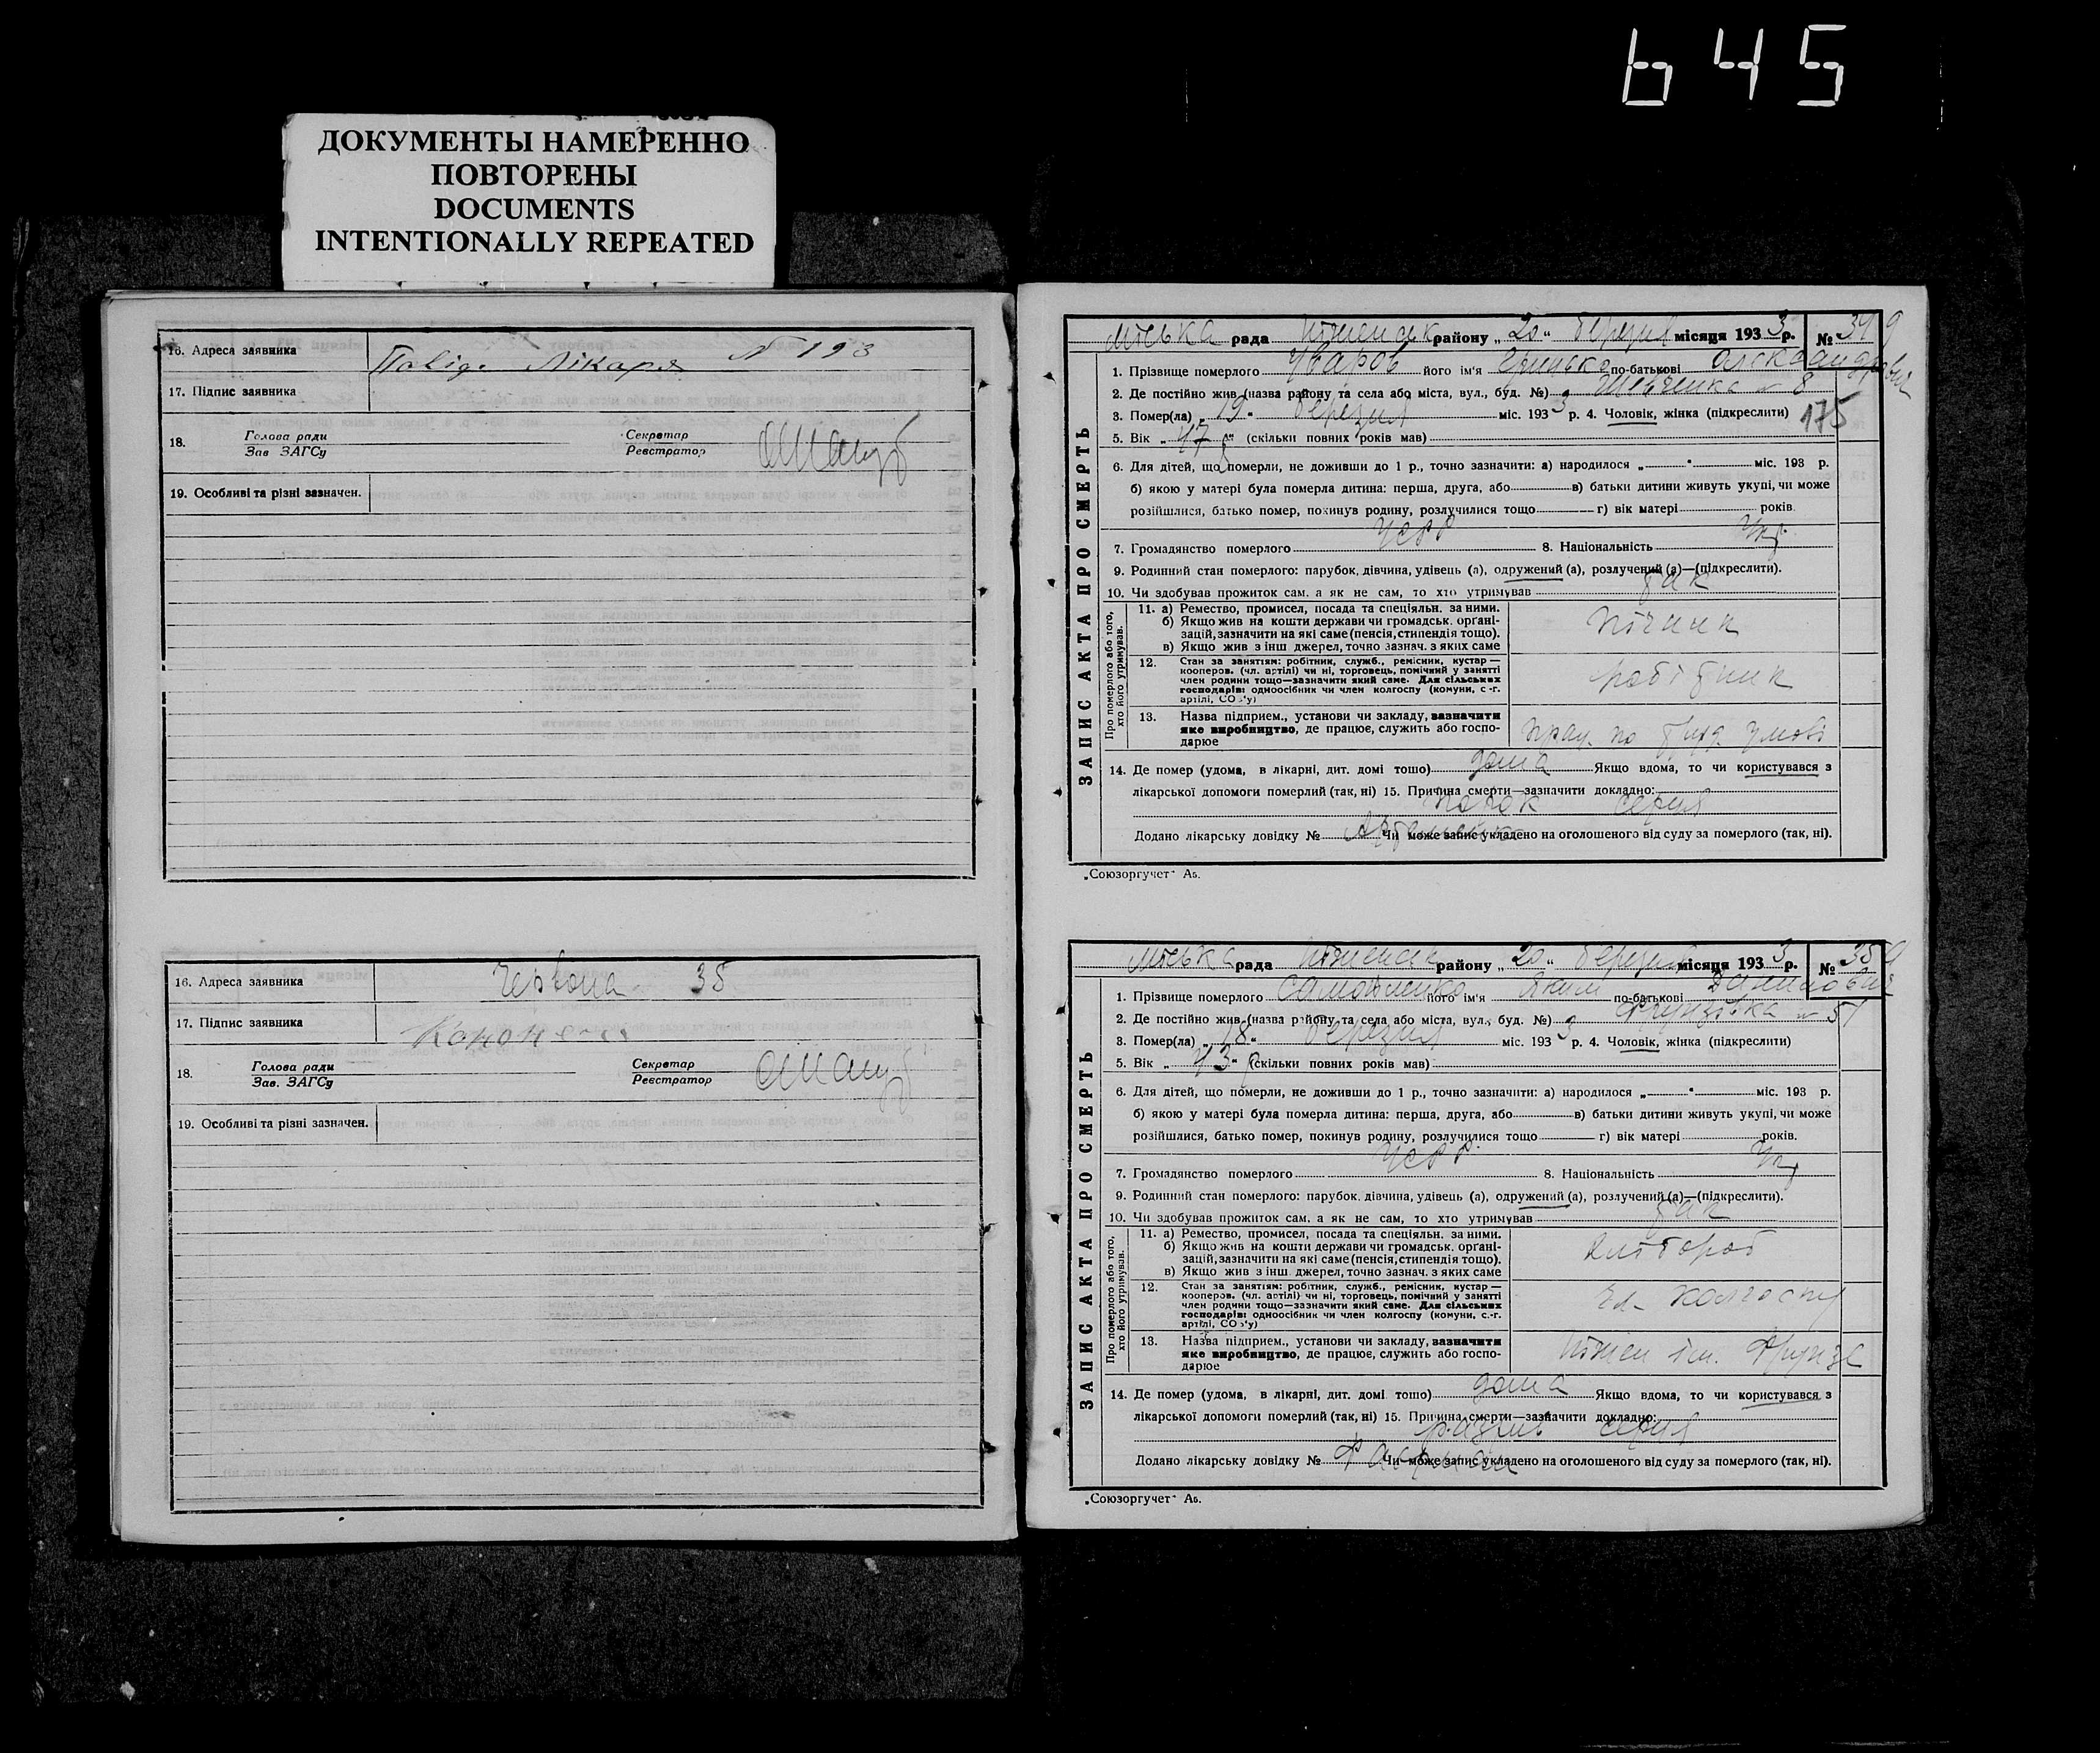 645
ДОКУМЕНТЫ НАМЕРЕННО
ПОВТОРЕНЫ
DOCUMENTS
INTENTIONALLY REPEATED
16. Адреса заявника Повід. Лікаря № 193
17. Підпис заявника
18. Голова ради Секретар
Зав ЗАГСу Реєстратор
19. Особливі та різні зазначен.
16. Адреса заявника Червона 38
17. Підпис заявника
18. Голова ради Секретар
Зав. ЗАГСу Реєстратор
19. Особливі та різні зазначен.
ЗАПИС АКТА ПРО СМЕРТЬ
Міська рада району „20" березня місяця 1933 р. № 349
1. Прізвище померлого Уваров його ім'я Грицько по-батькові Олександрович
2. Де постійно жив (назва району та села або міста, вул., буд. №) Шевченка № 8
3. Помер(ла) „19" березня міс. 1933 р. 4. Чоловік, жінка (підкреслити) 175
5. Вік „47" (скільки повних років мав)
6. Для дітей, що померли, не доживши до 1 р., точно зазначити: а) народилося „ " міс. 193 р.
б) якою у матері була померла дитина: перша, друга, або в) батьки дитини живуть укупі, чи може
розійшлися, батько помер, покинув родину, розлучилися тощо г) вік матері років.
7. Громадянство померлого УСРР 8. Національність Укр.
9. Родинний стан померлого: парубок, дівчина, удівець (а), одружений (а), розлучений (а)—(підкреслити).
10. Чи здобував прожиток сам, а як не сам, то хто утримував так
Про померлого або того, хто його утримував.
11. а) Ремество, промисел, посада та спеціяльн. за ними.
б) Якщо жив на кошти держави чи громадськ. органі-
зацій, зазначити на які саме (пенсія, стипендія тощо).
в) Якщо жив з інш джерел, точно зазнач. з яких саме
пічник
12. Стан за заняттям: робітник, служб., ремісник, кустар—
кооперов. (чл. артілі) чи ні, торговець, помічний у занятті
член родини тощо—зазначити який саме. Для сільських
господарів: одноосібник чи член колгоспу (комуни, с.-г.
артілі, СОЗ'у)
робітник
13. Назва підприєм., установи чи закладу, зазначити
яке виробництво, де працює, служить або госпо-
дарює
прац. по труд. умові
14. Де помер (удома, в лікарні, дит. домі тощо) дома Якщо вдома, то чи користувався з
лікарської допомоги померлий (так, ні) 15. Причина смерти—зазначити докладно:
порок серця
Додано лікарську довідку № Чи може запис укладено на оголошеного від суду за померлого (так, ні).
„Союзоргучет" Аб.
ЗАПИС АКТА ПРО СМЕРТЬ
Міська рада району „20" березня місяця 1933 р. № 350
1. Прізвище померлого Самойленко його ім'я Яким по-батькові Данилович
2. Де постійно жив (назва району та села або міста, вул., буд. №) Фрунзівка № 51
3. Помер(ла) „18" березня міс. 1933 р. 4. Чоловік, жінка (підкреслити)
5. Вік „43" (скільки повних років мав)
6. Для дітей, що померли, не доживши до 1 р., точно зазначити: а) народилося „ " міс. 193 р.
б) якою у матері була померла дитина: перша, друга, або в) батьки дитини живуть укупі, чи може
розійшлися, батько помер, покинув родину, розлучилися тощо г) вік матері років.
7. Громадянство померлого УСРР. 8. Національність Укр
9. Родинний стан померлого: парубок, дівчина, удівець (а), одружений (а), розлучений (а)—(підкреслити).
10. Чи здобував прожиток сам, а як не сам, то хто утримував так
Про померлого або того, хто його утримував.
11. а) Ремество, промисел, посада та спеціяльн. за ними.
б) Якщо жив на кошти держави чи громадськ. органі-
зацій, зазначити на які саме (пенсія, стипендія тощо).
в) Якщо жив з інш джерел, точно зазнач. з яких саме
хлібороб
12. Стан за заняттям: робітник, служб., ремісник, кустар—
кооперов. (чл. артілі) чи ні, торговець, помічний у занятті
член родини тощо—зазначити який саме. Для сільських
господарів: одноосібник чи член колгоспу (комуни, с.-г.
артілі, СОЗ'у)
чл. колгоспу
13. Назва підприєм., установи чи закладу, зазначити
яке виробництво, де працює, служить або госпо-
дарює
ім. Фрунзе
14. Де помер (удома, в лікарні, дит. домі тощо) дома Якщо вдома, то чи користувався з
лікарської допомоги померлий (так, ні) 15. Причина смерти—зазначити докладно:
серця
Додано лікарську довідку № Чи може запис укладено на оголошеного від суду за померлого (так, ні).
„Союзоргучет" Аб.